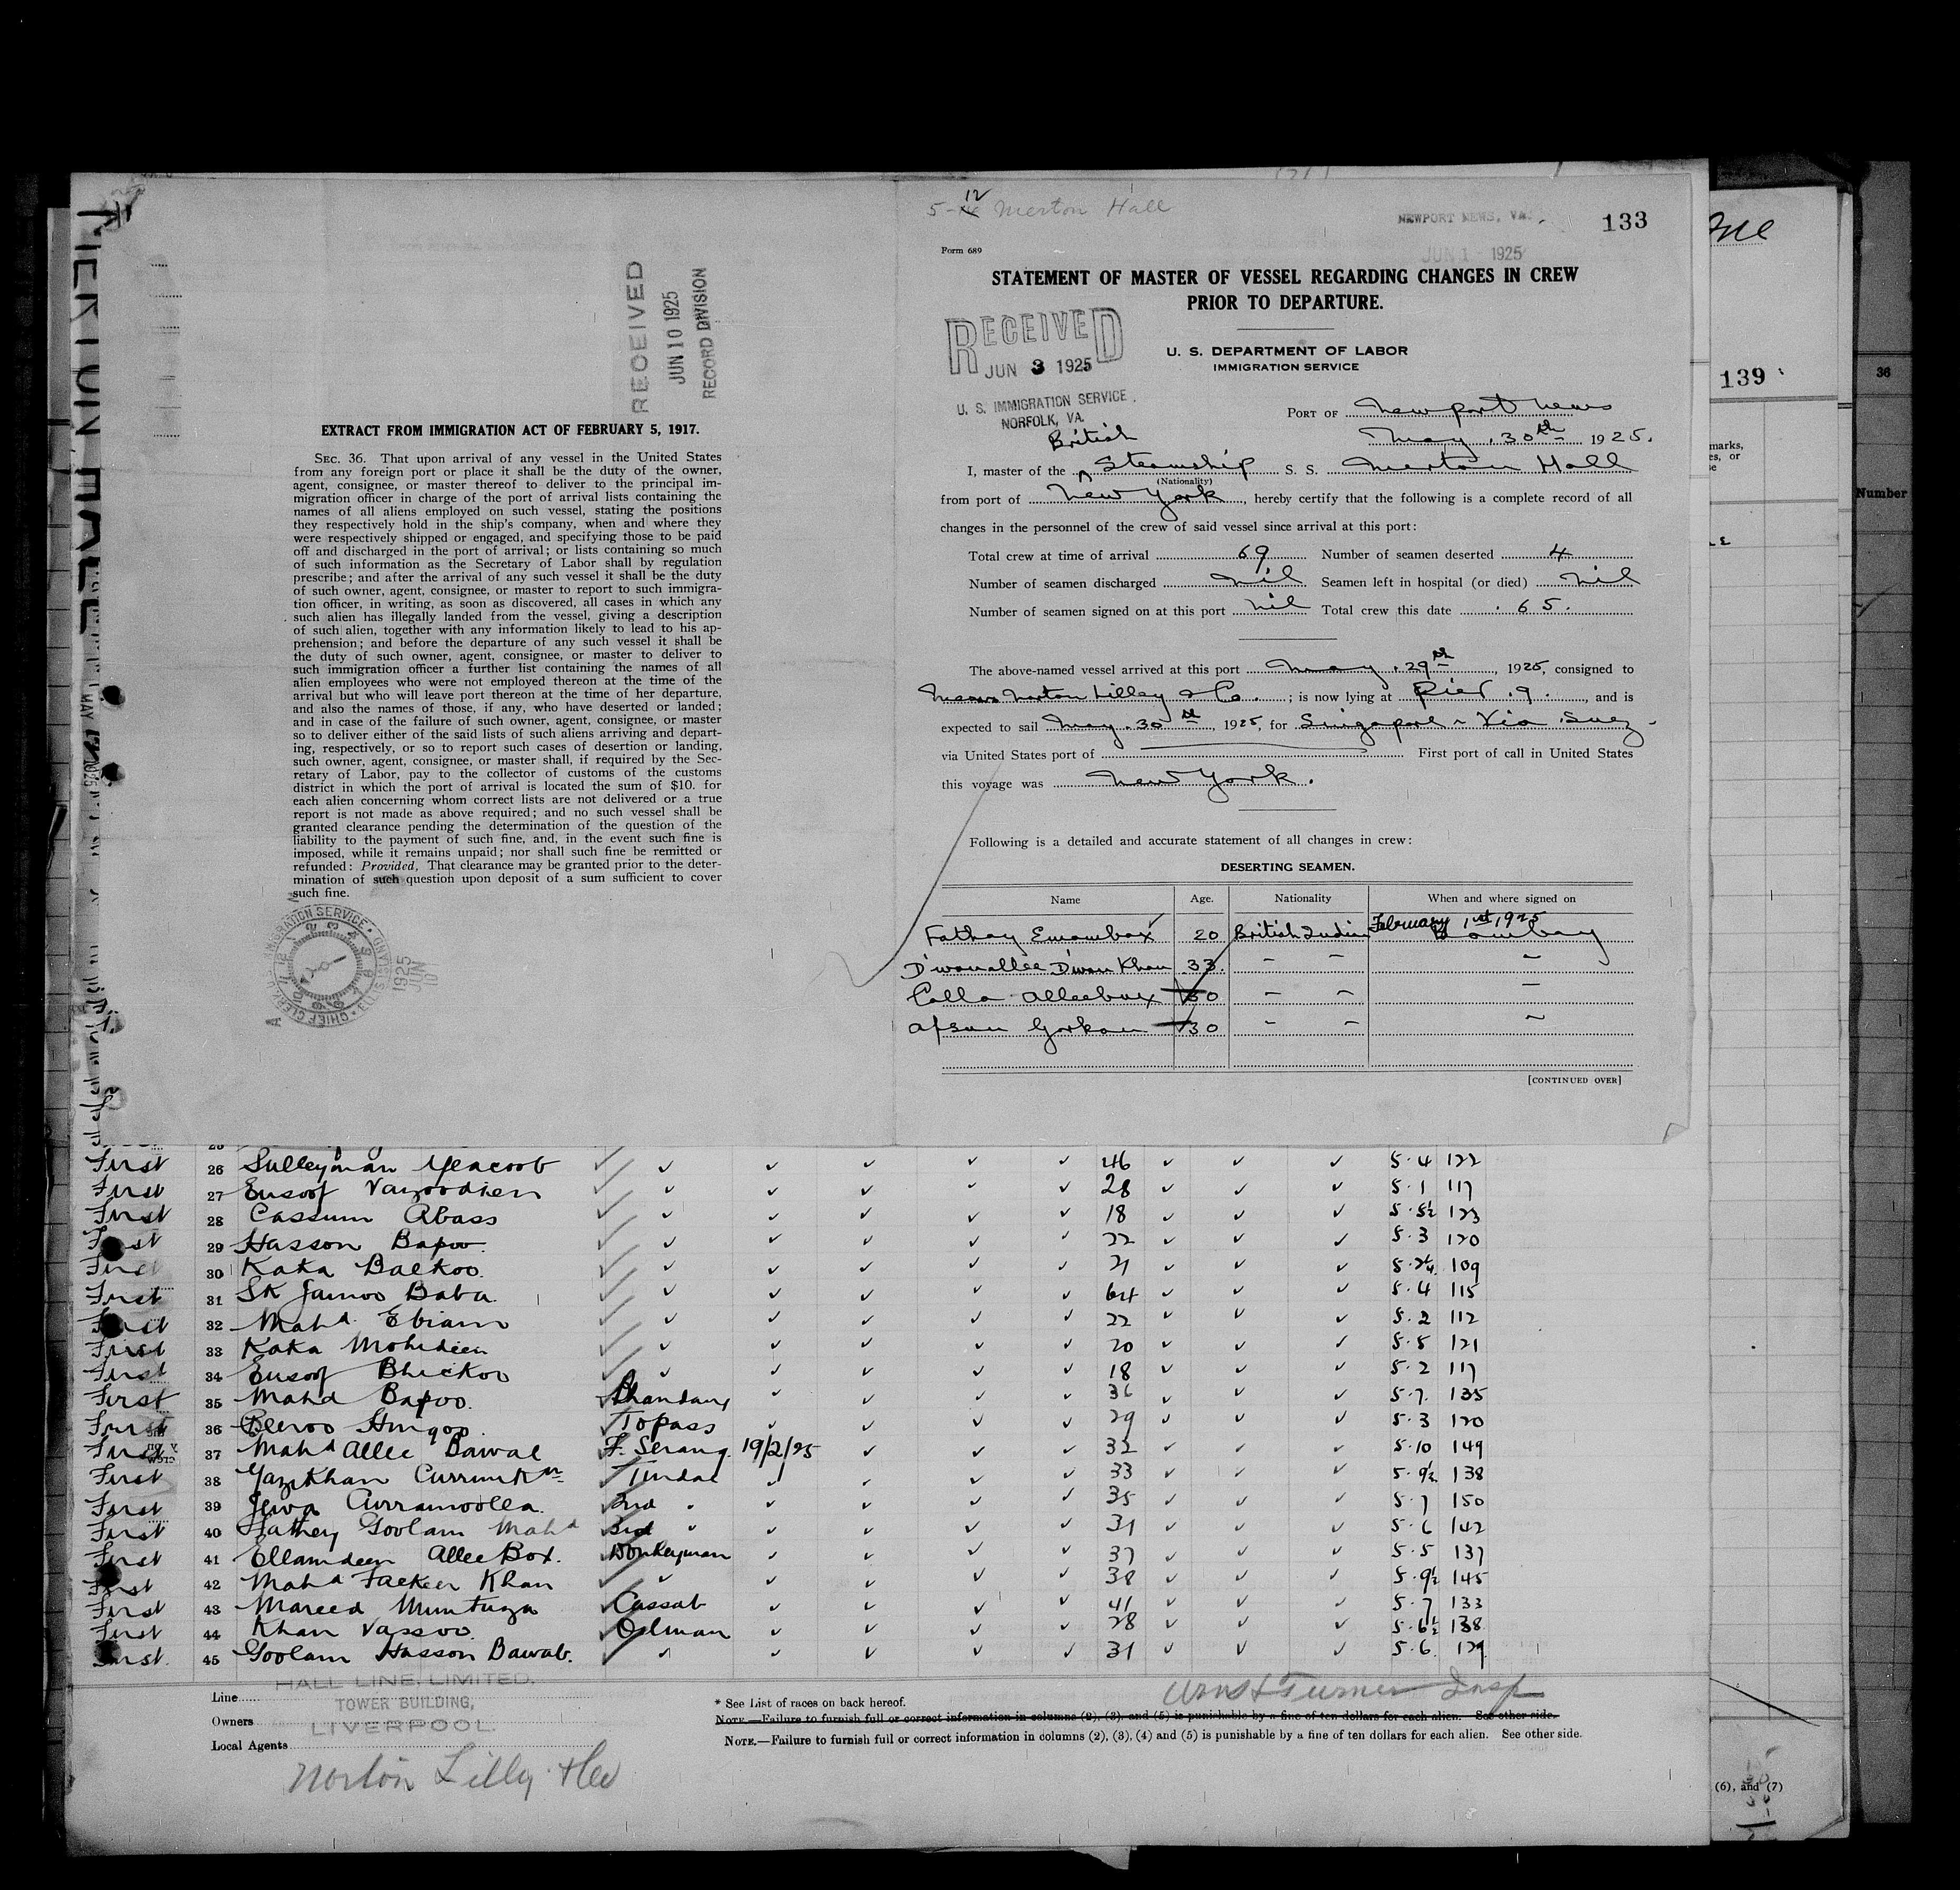 RECEIVED
JUN 10 1925
RECORD DIVISION
EXTRACT FROM IMMIGRATION ACT OF FEBRUARY 5, 1917.
SEC. 36. That upon arrival of any vessel in the United States
from any foreign port or place it shall be the duty of the owner,
agent, consignee, or master thereof to deliver to the principal im-
migration officer in charge of the port of arrival lists containing the
names of all aliens employed on such vessel, stating the positions
they respectively hold in the ship's company, when and where they
were respectively shipped or engaged, and specifying those to be paid
off and discharged in the port of arrival; or lists containing so much
of such information as the Secretary of Labor shall by regulation
prescribe; and after the arrival of any such vessel it shall be the duty
of such owner, agent, consignee, or master to report to such immigra-
tion officer, in writing, as soon as discovered, all cases in which any
such alien has illegally landed from the vessel, giving a description
of such alien, together with any information likely to lead to his ap-
prehension; and before the departure of any such vessel it shall be
the duty of such owner, agent, consignee, or master to deliver to
such immigration officer a further list containing the names of all
alien employees who were not employed thereon at the time of the
arrival but who will leave port thereon at the time of her departure,
and also the names of those, if any, who have deserted or landed;
and in case of the failure of such owner, agent, consignee, or master
so to deliver either of the said lists of such aliens arriving and depart-
ing, respectively, or so to report such cases of desertion or landing,
such owner, agent, consignee, or master shall, if required by the Sec-
retary of Labor, pay to the collector of customs of the customs
district in which the port of arrival is located the sum of $10. for
each alien concerning whom correct lists are not delivered or a true
report is not made as above required; and no such vessel shall be
granted clearance pending the determination of the question of the
liability to the payment of such fine, and, in the event such fine is
imposed, while it remains unpaid; nor shall such fine be remitted or
refunded: Provided, That clearance may be granted prior to the deter-
mination of such question upon deposit of a sum sufficient to cover
such fine.
5-12 Merton Hall
NEWPORT NEWS, VA.
133
JUN 1 1925
Form 689
STATEMENT OF MASTER OF VESSEL REGARDING CHANGES IN CREW
PRIOR TO DEPARTURE.
RECEIVED
JUN 3 1925
U. S. IMMIGRATION SERVICE
NORFOLK, VA.
U. S. DEPARTMENT OF LABOR
IMMIGRATION SERVICE
PORT OF Newport News
May 30th 1925.
British
I, master of the Steamship S. S. Merton Hall
(Nationality)
from port of New York, hereby certify that the following is a complete record of all
changes in the personnel of the crew of said vessel since arrival at this port:
Total crew at time of arrival 69 Number of seamen deserted 4
Number of seamen discharged nil Seamen left in hospital (or died) nil
Number of seamen signed on at this port nil Total crew this date 65.
The above-named vessel arrived at this port May 29th, 1925, consigned to
Messrs Norton Lilley & Co.; is now lying at Pier 9., and is
expected to sail May 30th, 1925, for Singapore Via Suez
via United States port of First port of call in United States
this voyage was New York.
Following is a detailed and accurate statement of all changes in crew:
DESERTING SEAMEN.
Name Age. Nationality When and where signed on
Fathay Emambax 20 British Indian February 1st, 1925 Bombay
D'wanallee Dwan Khan 33.
Calla Alleebux 50
Afsan Gorkan 30
[CONTINUED OVER]
First 26 Sulleyman Yeacoob 46 5.4 122
First 27 Eusoof Vazoodkien 28 5.1 117
First 28 Cassum Abass 18 5.5½ 123
First 29 Hasson Bapoo 22 5.3 120
First 30 Kaka Baekoo 21 109
First 31 SK Jamoo Baba 64 5.4 115
First 32 Mahd Ebiam 22 5.2 112
First 33 Kaka Mohideen 20 5.5 121
First 34 Eusoof Bhickoo 18 5.2 117
First 35 Mahd Bapoo Bhandary 36 5.7 135
First 36 Hingoo Topass 29 5.3 120
First 37 Mahd Allee Bawal F. Serang 19/2/25 32 5.10 149
First 38 Tindal 33 5.9½ 138
First 39 Jewa Curramoolla 2nd 35 5.7 150
First 40 Fathey Goolam Mahd 3rd 31 5.6 142
First 41 Ellamdeen Allee Box. Donkeyman 37 5.5 137
First 42 Mahd Faekeer Khan 38 5.9½ 145
First 43 Mareed Muntuza Cassab 41 5.7 133
First 44 Khan Vassoo Oilman 28 5.6½ 138
First 45 Goolam Hasson Bawab. 31 5.6 129
Line HALL LINE, LIMITED.
Owners TOWER BUILDING,
LIVERPOOL.
Local Agents
Norton Lilly & Co
* See List of races on back hereof.
NOTE.—Failure to furnish full or correct information in columns (2), (3), and (5) is punishable by a fine of ten dollars for each alien. See other side.
NOTE.—Failure to furnish full or correct information in columns (2), (3), (4) and (5) is punishable by a fine of ten dollars for each alien. See other side.
Turner Insp
139
marks,
es, or
36
Number
(6), and (7)